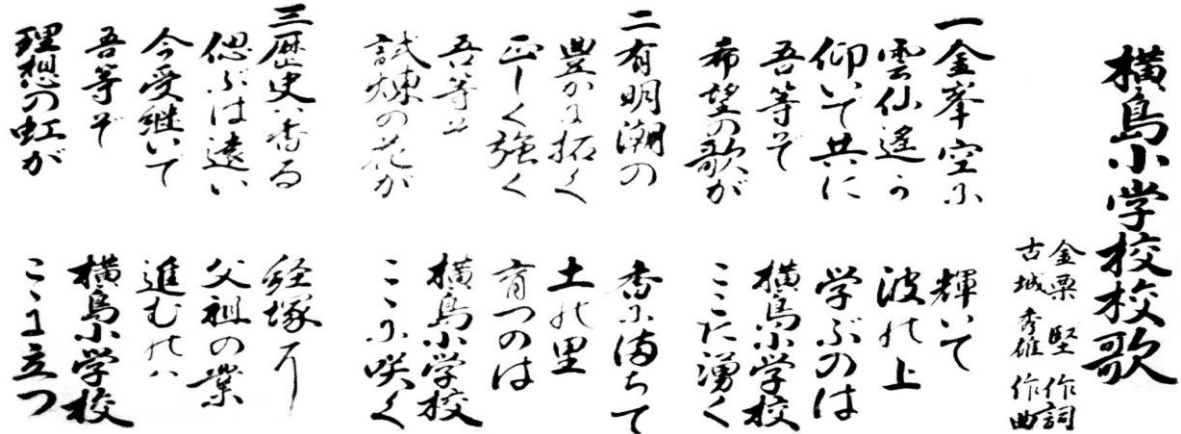 横島小学校校歌
金栗 堅 作詞
古城 秀雄 作曲
一 金峯空に 輝いて
雲仙遙か 波の上
仰いで共に 学ぶのは
吾等ぞ 横島小学校
希望の歌が ここに湧く
二 有明潮の 香に満ちて
豊かに拓く 土の里
正しく強く 育つのは
吾等ぞ 横島小学校
試煉の花が ここに咲く
三 歴史は香る 経塚
偲ぶは遠い 父祖の業
今受継いで 進むのは
吾等ぞ 横島小学校
理想の虹が ここに立つ